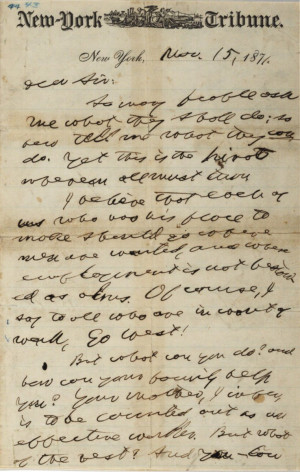 New-York Tribune.
New York, Nov. 15, 1871.
Dear Sir:
So many people ask
me what they shall do; so
few tell me what they can
do. Yet this is the pivot
wherein all must turn.
I believe that each of
us who has his place to
make should go where
men are wanted, and where
employment is not bestow-
ed as alms. Of course, I
say to all who are in want of
work, Go West!
But what can you do? and
how can your family help
you? Your mother, I infer,
is to be counted out as an
effective worker. But what
of the rest? And you - Can